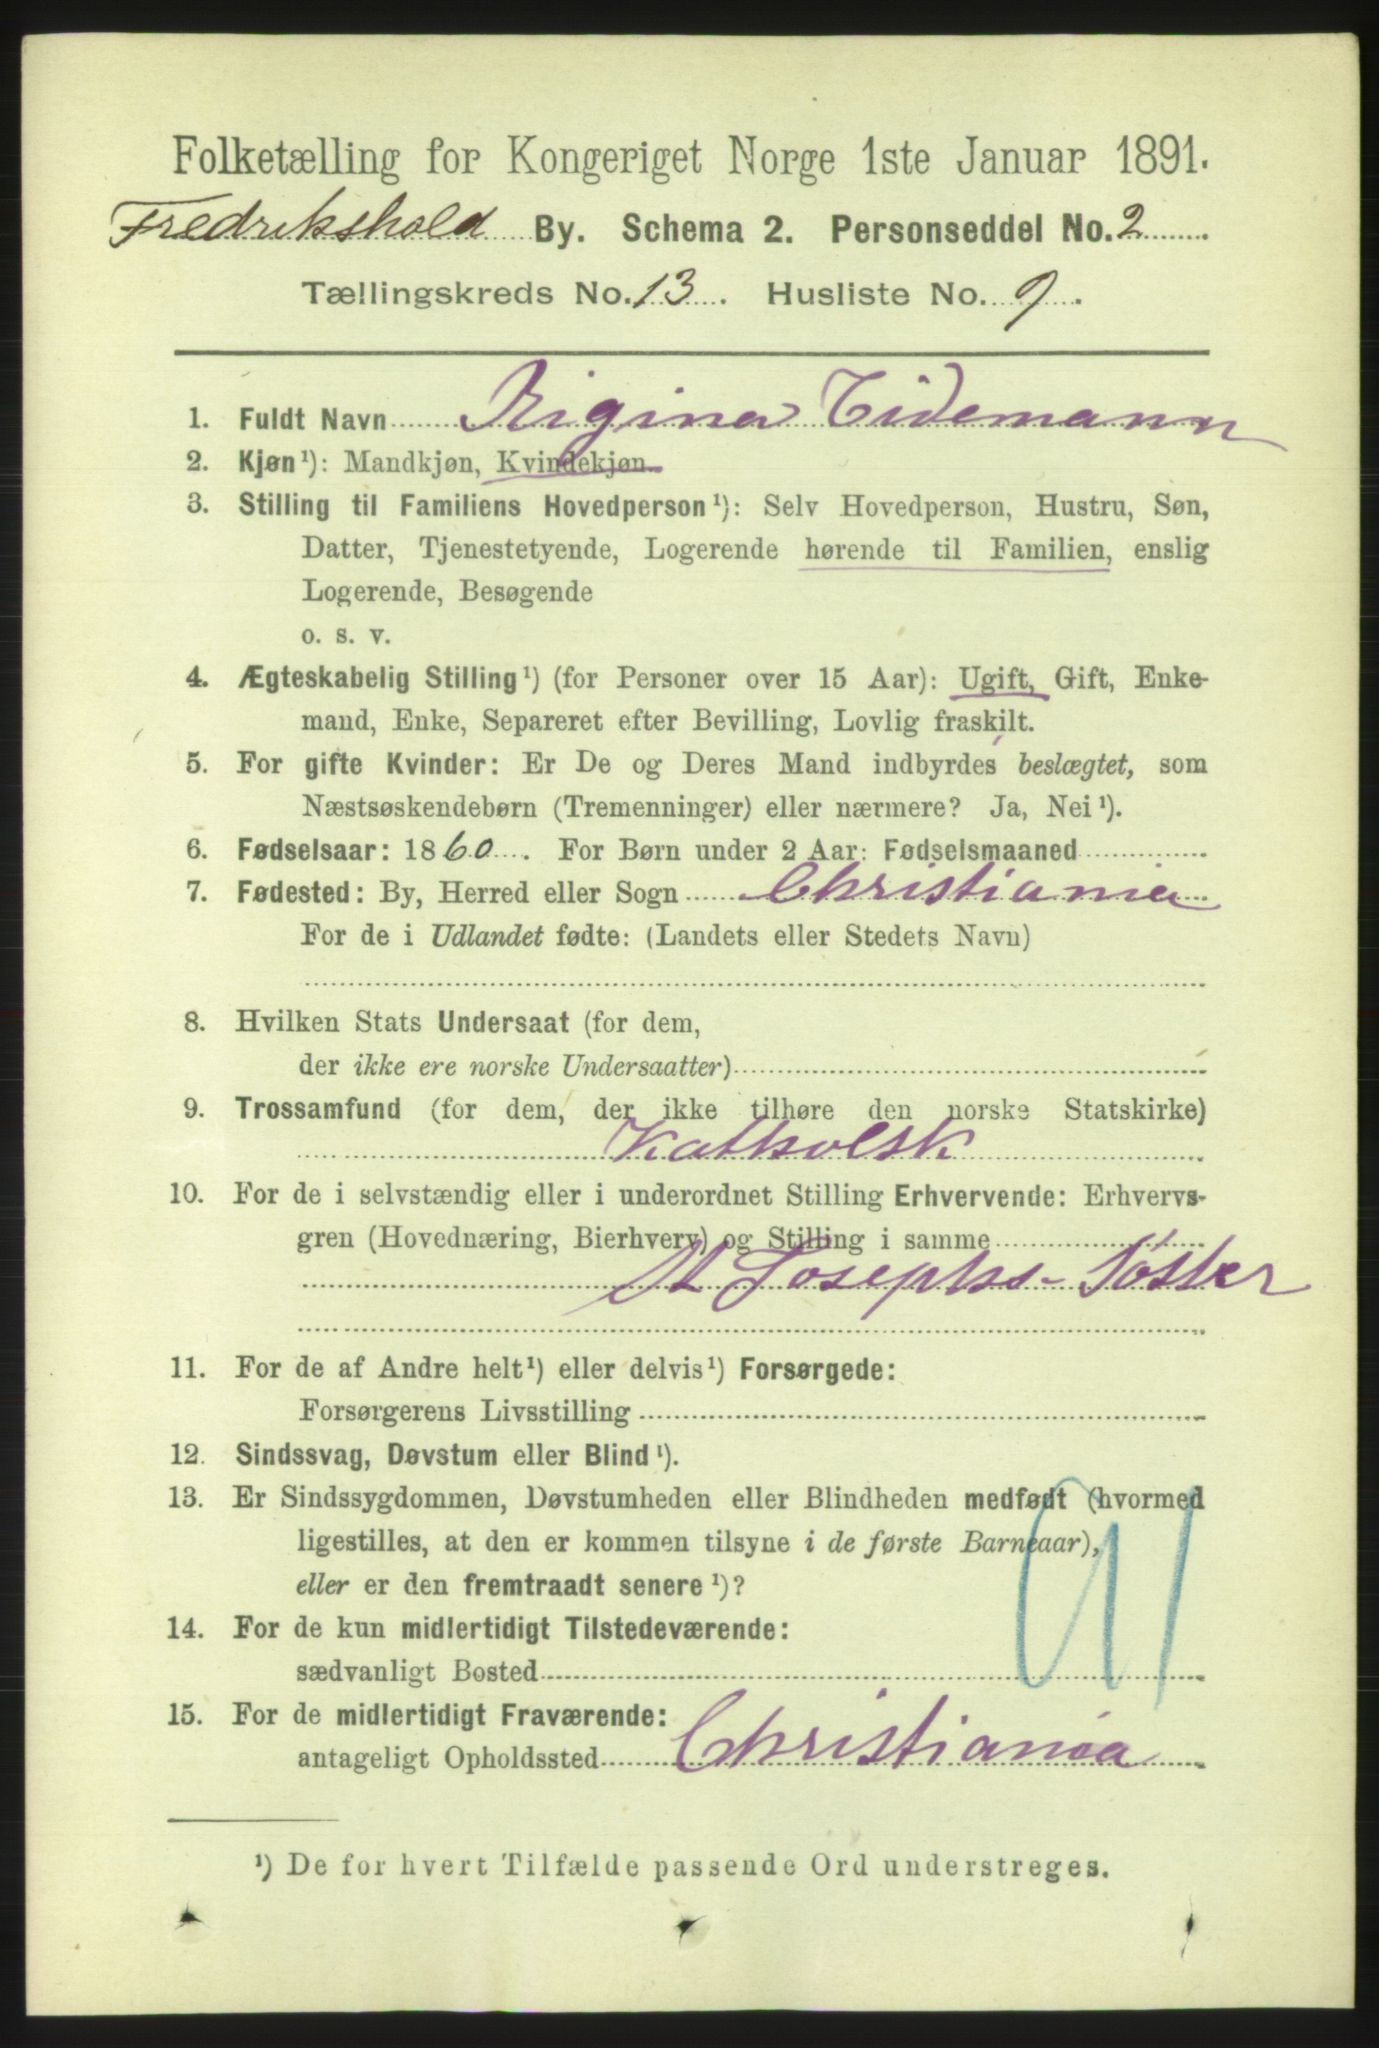 Folketælling for Kongeriget Norge 1ste Januar 1891.
Fredrikshald By. Schema 2. Personseddel No. 2
Tællingskreds No. 13. Husliste No. 9.
1. Fuldt Navn Rigina Tidemann
2. Kjøn ¹): Mandkjøn, Kvindekjøn.
3. Stilling til Familiens Hovedperson ¹): Selv Hovedperson, Hustru, Søn,
Datter, Tjenestetyende, Logerende hørende til Familien, enslig
Logerende, Besøgende
o. s. v.
4. Ægteskabelig Stilling ¹) (for Personer over 15 Aar): Ugift, Gift, Enke-
mand, Enke, Separeret efter Bevilling, Lovlig fraskilt.
5. For gifte Kvinder: Er De og Deres Mand indbyrdes beslægtet, som
Næstsøskendebørn (Tremenninger) eller nærmere? Ja, Nei ¹).
6. Fødselsaar: 1860. For Børn under 2 Aar: Fødselsmaaned
7. Fødested: By, Herred eller Sogn Christiania
For de i Udlandet fødte: (Landets eller Stedets Navn)
8. Hvilken Stats Undersaat (for dem,
der ikke ere norske Undersaatter)
9. Trossamfund (for dem, der ikke tilhøre den norske Statskirke)
Katholsk
10. For de i selvstændig eller i underordnet Stilling Erhvervende: Erhvervs-
gren (Hovednæring, Bierhverv) og Stilling i samme
St Josephs-Søster
11. For de af Andre helt ¹) eller delvis ¹) Forsørgede:
Forsørgerens Livsstilling
12. Sindssvag, Døvstum eller Blind ¹).
13. Er Sindssygdommen, Døvstumheden eller Blindheden medfødt (hvormed
ligestilles, at den er kommen tilsyne i de første Barneaar),
eller er den fremtraadt senere ¹)?
14. For de kun midlertidigt Tilstedeværende:
sædvanligt Bosted
15. For de midlertidigt Fraværende:
antageligt Opholdssted Christiania
¹) De for hvert Tilfælde passende Ord understreges.